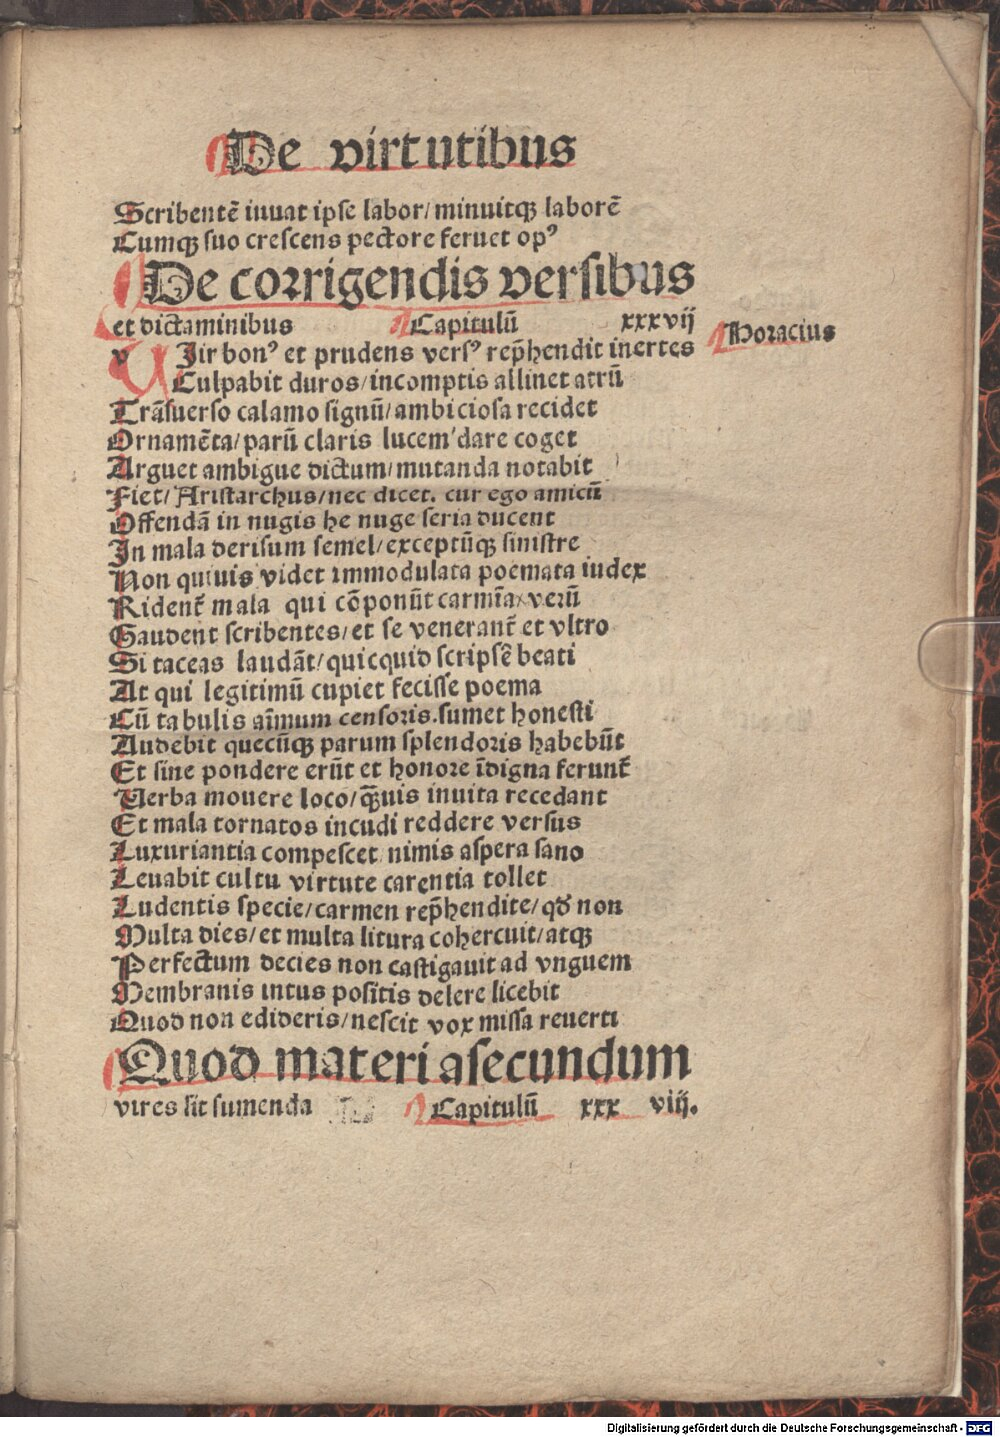 De virtutibus
Scribentē iuuat ipse labor/ minuitqꝫ laborē
Cumqꝫ suo crescens pectore feruet opꝰ
De corrigendis versibus
et dictaminibus Capitulū xxxvij
Horacius
v Jir bonꝰ et prudens versꝰ rep̄hendit inertes
Culpabit duros/ incomptis allinet atrū
Trāsuerso calamo signū/ ambiciosa recidet
Ornamēta/ parū claris lucem dare coget
Arguet ambigue dictum/ mutanda notabit
Fiet/ Aristarchus/ nec dicet. cur ego amicū
Offendā in nugis he nuge seria ducent
In mala derisum semel/ exceptūqꝫ sinistre
Non quiuis videt immodulata poemata iudex
Ridenť mala qui cōponūt carmīa/ verū
Gaudent scribentes/ et se veneranť et vltro
Si taceas laudāt/ quicquid scripsē beati
At qui legitimū cupiet fecisse poema
Cū tabulis aīmum censoris.sumet honesti
Audebit quecūqꝫ parum splendoris habebūt
Et sine pondere erūt et honore īdigna ferunť
Uerba mouere loco/ q̄uis inuita recedant
Et mala tornatos incudi reddere versus
Luxuriantia compescet nimis aspera sano
Leuabit cultu virtute carentia tollet
Ludentis specie/ carmen rep̄hendite/ qđ non
Multa dies/ et multa litura cohercuit/ atqꝫ
Perfectum decies non castigauit ad vnguem
Membranis intus positis delere licebit
Quod non edideris/ nescit vox missa reuerti
Quod materi asecundum
vires sit sumenda Capitulū xxx viij.
Digitalisierung gefördert durch die Deutsche Forschungsgemeinschaft - DFG